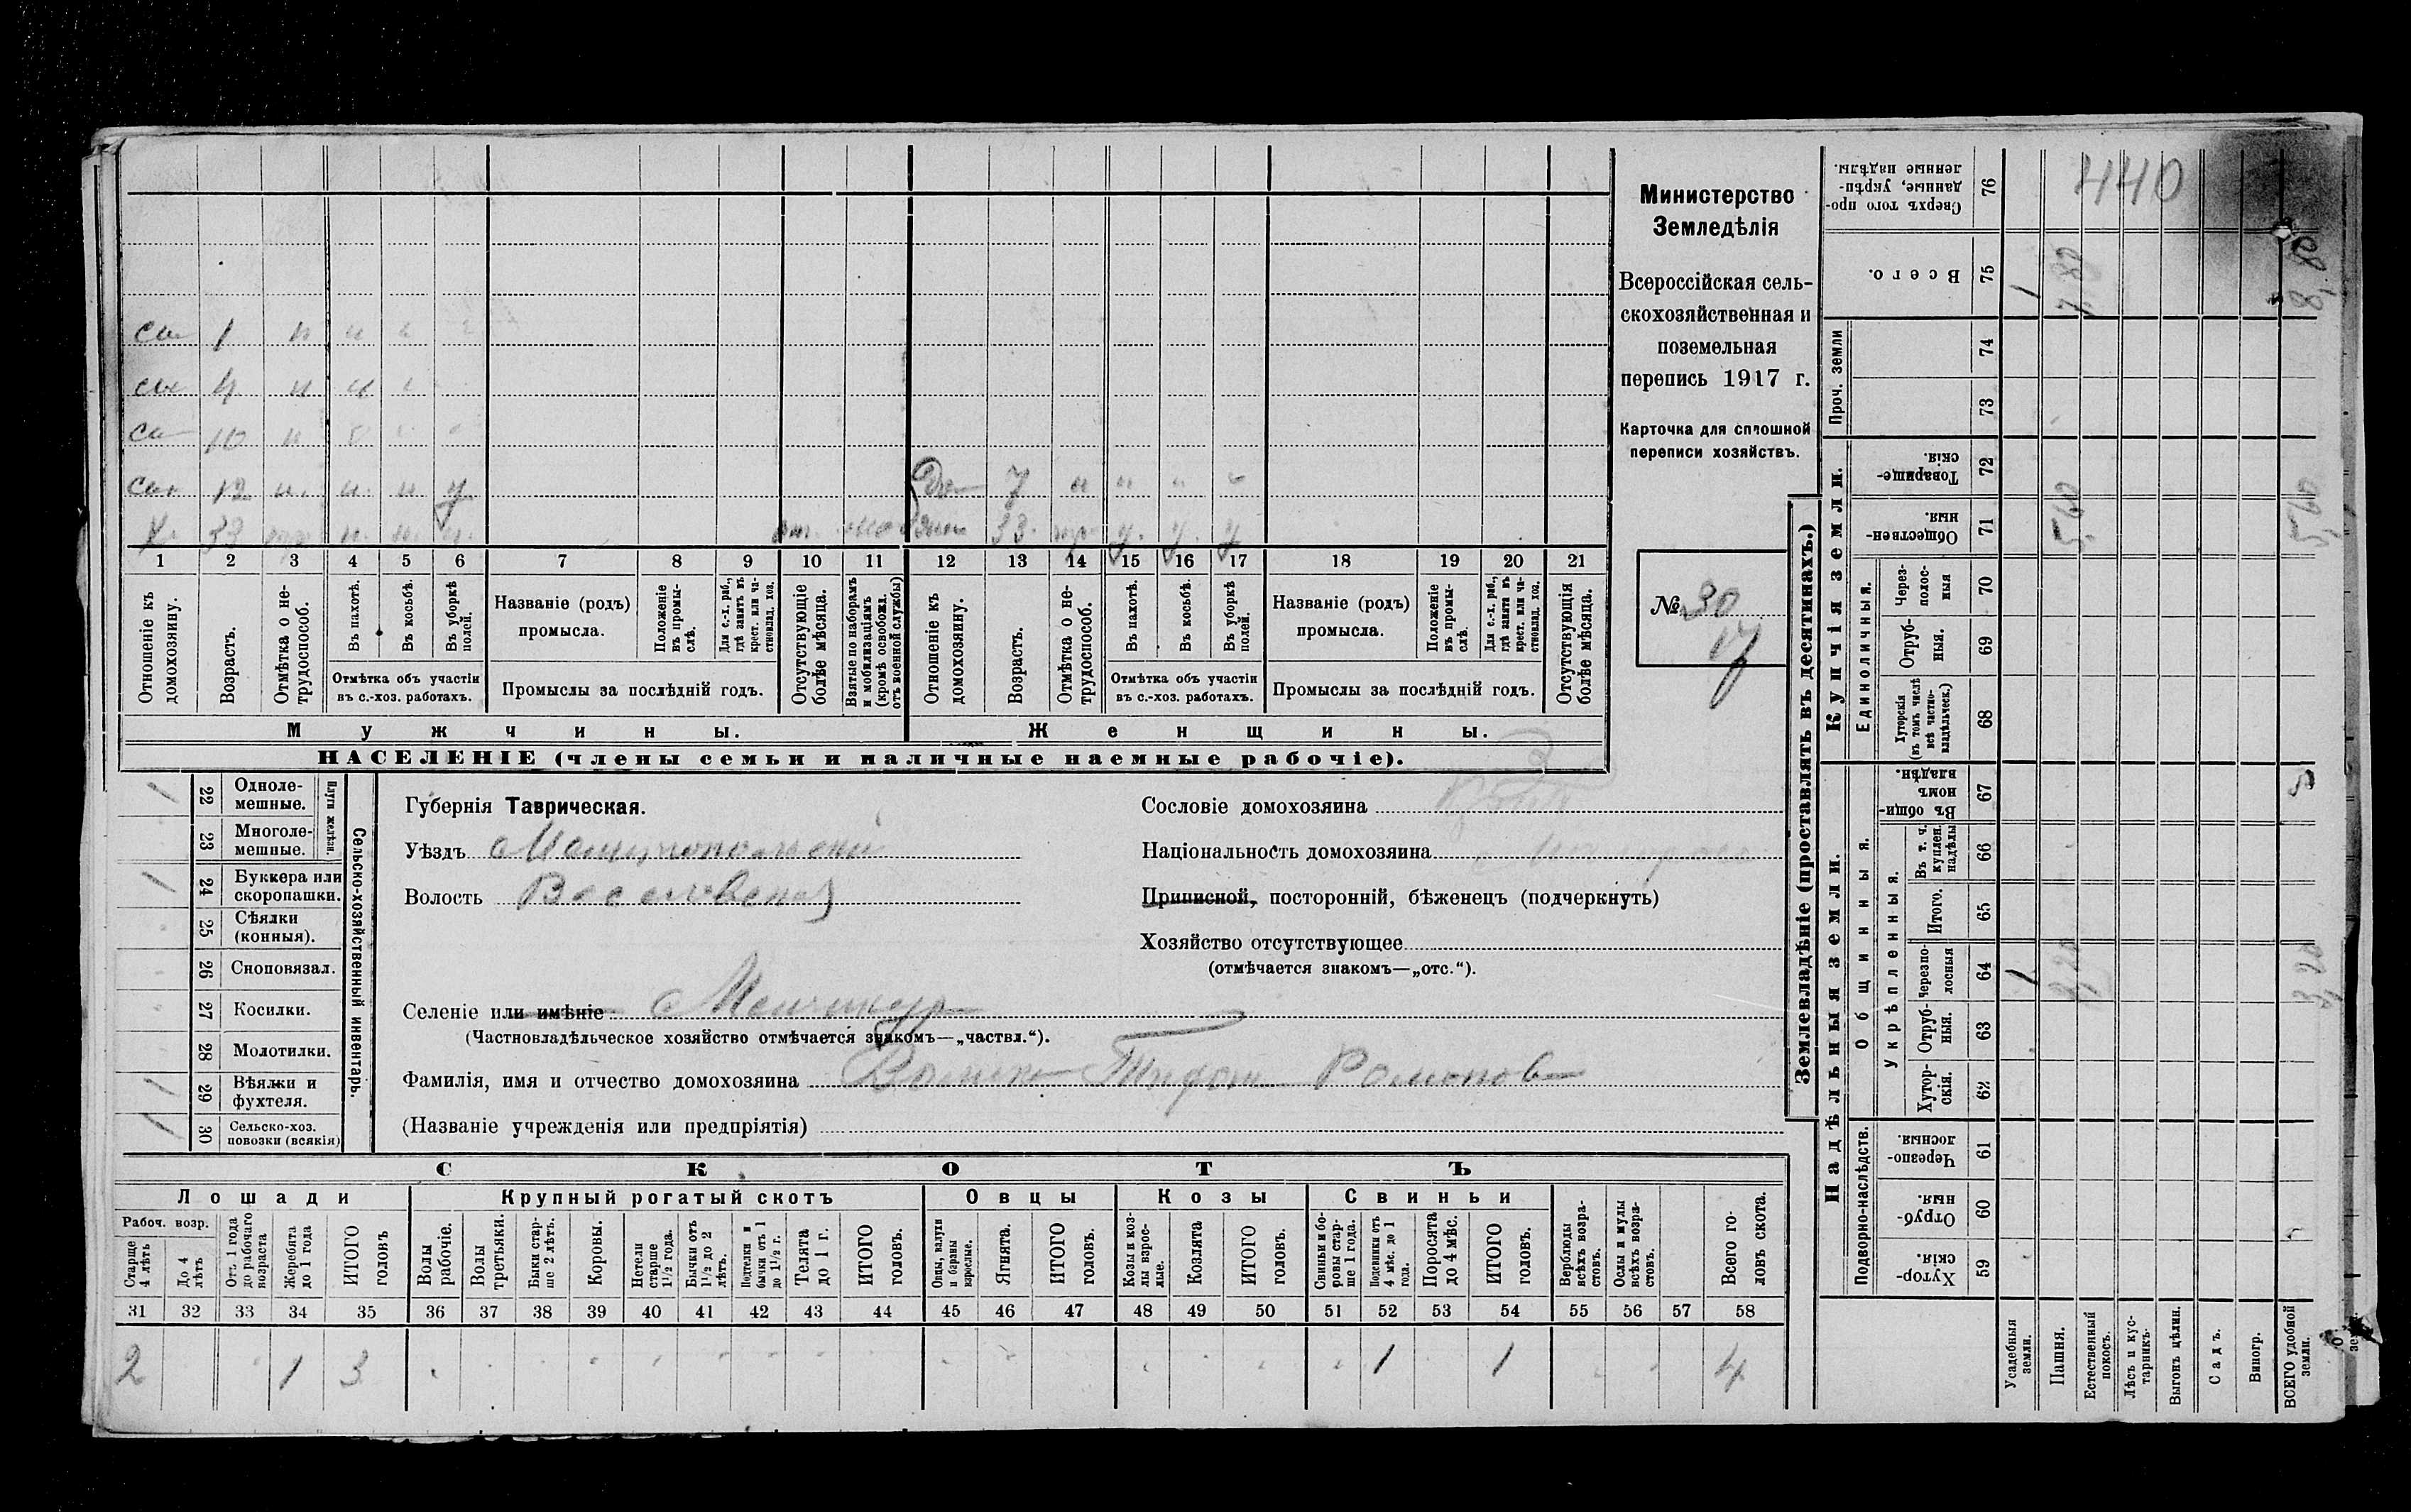 Министерство
Земледѣлія
Всероссійская сель-
скохозяйственная и
поземельная
перепись 1917 г.
Карточка для сплошной
переписи хозяйствъ.
№ 30
17
440
со 1 н н
4 н н
10 н
12 н. н. н у
до 7 н н
33 33 у. у. у
1 2 3 4 5 6 7 8 9 10 11 12 13 14 15 16 17 18 19 20 21
Отношеніе къ домохозяину.
Возрастъ.
Отмѣтка о не-трудоспособ.
Въ пахотѣ.
Въ косьбѣ.
Въ уборкѣ полей.
Отмѣтка объ участіи въ с.-хоз. работахъ.
Названіе (родъ) промысла.
Положеніе въ промы-слѣ.
Для с.-х. раб., гдѣ занятъ въ крест. или ча-стновлад. хоз.
Промыслы за послѣдній годъ.
Отсутствующіе болѣе мѣсяца.
Взятые по наборамъ и мобилизаціямъ (кромѣ освобожд. отъ военной службы)
Отношеніе къ домохозяину.
Возрастъ.
Отмѣтка о не-трудоспособ.
Въ пахотѣ.
Въ косьбѣ.
Въ уборкѣ полей.
Отмѣтка объ участіи въ с.-хоз. работахъ.
Названіе (родъ) промысла.
Положеніе въ промы-слѣ.
Для с.-х. раб., гдѣ занята въ крест. или ча-стновлад. хоз.
Промыслы за послѣдній годъ.
Отсутствующія болѣе мѣсяца.
Мужчины. Женщины.
НАСЕЛЕНІЕ (члены семьи и наличные наемные рабочіе).
Сельско-хозяйственный инвентарь.
Плуги желѣзн.
1 22 Одноле-мешные.
23 Многоле-мешные.
1 24 Буккера или скоропашки.
25 Сѣялки (конныя).
26 Сноповязал.
27 Косилки.
28 Молотилки.
1 29 Вѣялки и фухтеля.
1 30 Сельско-хоз. повозки (всякія)
Губернія Таврическая.
Уѣздъ Мелитопольскій
Волость Веселовская
Селеніе или имѣніе Менчикур
(Частновладѣльческое хозяйство отмѣчается знакомъ—„частвл.“).
Фамилія, имя и отчество домохозяина Романов
(Названіе учрежденія или предпріятія)
Сословіе домохозяина
Національность домохозяина
Приписной, посторонній, бѣженецъ (подчеркнуть)
Хозяйство отсутствующее
(отмѣчается знакомъ—„отс.“).
СКОТЪ
Лошади Крупный рогатый скотъ Овцы Козы Свиньи
Рабоч. возр.
Старше 4 лѣтъ
До 4 лѣтъ
Отъ 1 года до рабочаго возраста
Жеребята до 1 года
ИТОГО головъ
Волы рабочіе.
Волы третьяки.
Быки стар-ше 2 лѣтъ.
Коровы.
Нетели старше 1½ года.
Бычки отъ 1½ до 2 лѣтъ.
Подтелки и бычки отъ 1 до 1½ г.
Телята до 1 г.
ИТОГО головъ.
Овцы, валухи и бараны взрослые.
Ягнята.
ИТОГО головъ.
Козы и коз-лы взрос-лые.
Козлята
ИТОГО головъ.
Свиньи и бо-ровы стар-ше 1 года.
Подсвинки отъ 4 мѣс. до 1 года.
Поросята до 4 мѣс.
ИТОГО головъ.
Верблюды всѣхъ возра-стовъ.
Ослы и мулы всѣхъ возра-стовъ.
Всего го-ловъ скота.
31 32 33 34 35 36 37 38 39 40 41 42 43 44 45 46 47 48 49 50 51 52 53 54 55 56 57 58
2 1 3 1 1 4
Землевладѣніе (проставлять въ десятинахъ.)
Надѣльныя земли. Купчія земли. Проч. земли
Подворно-наслѣдств.
Общинныя.
Укрѣпленныя.
Единоличныя.
59 Хутор-скія.
60 Отруб-ныя.
61 Черезпо-лосныя.
62 Хутор-скія.
63 Отруб-ныя.
64 Черезпо-лосныя
65 Итого.
66 Въ т. ч. куплен. надѣлы
67 Въ общи-номъ владѣн.
68 Хуторскія (въ томъ числѣ всѣ частно-владѣльческ.)
69 Отруб-ныя.
70 Через-полос-ныя
71 Обществен-ныя.
72 Товарище-скія.
73
74
75 Всего.
76 Сверхъ того про-данные, укрѣп-ленные надѣлы.
Усадебныя земли.
Пашня.
Естественный покосъ.
Лѣсъ и кус-тарникъ.
Выгонъ цѣлин.
Садъ.
Виногр.
ВСЕГО удобной земли.